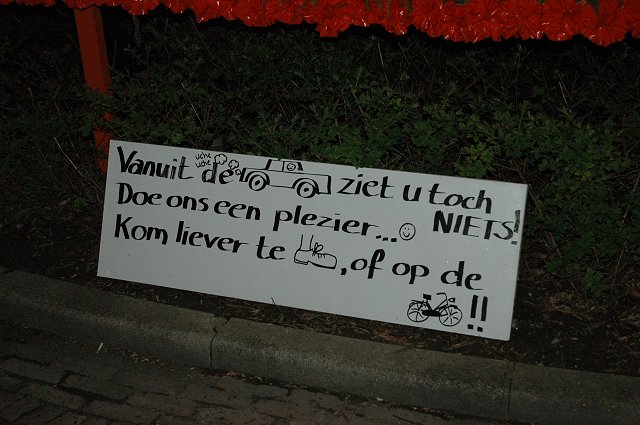 uche uche
Vanuit de ziet u toch
NIETS!
Doe ons een plezier...
Kom liever te , of op de
!!